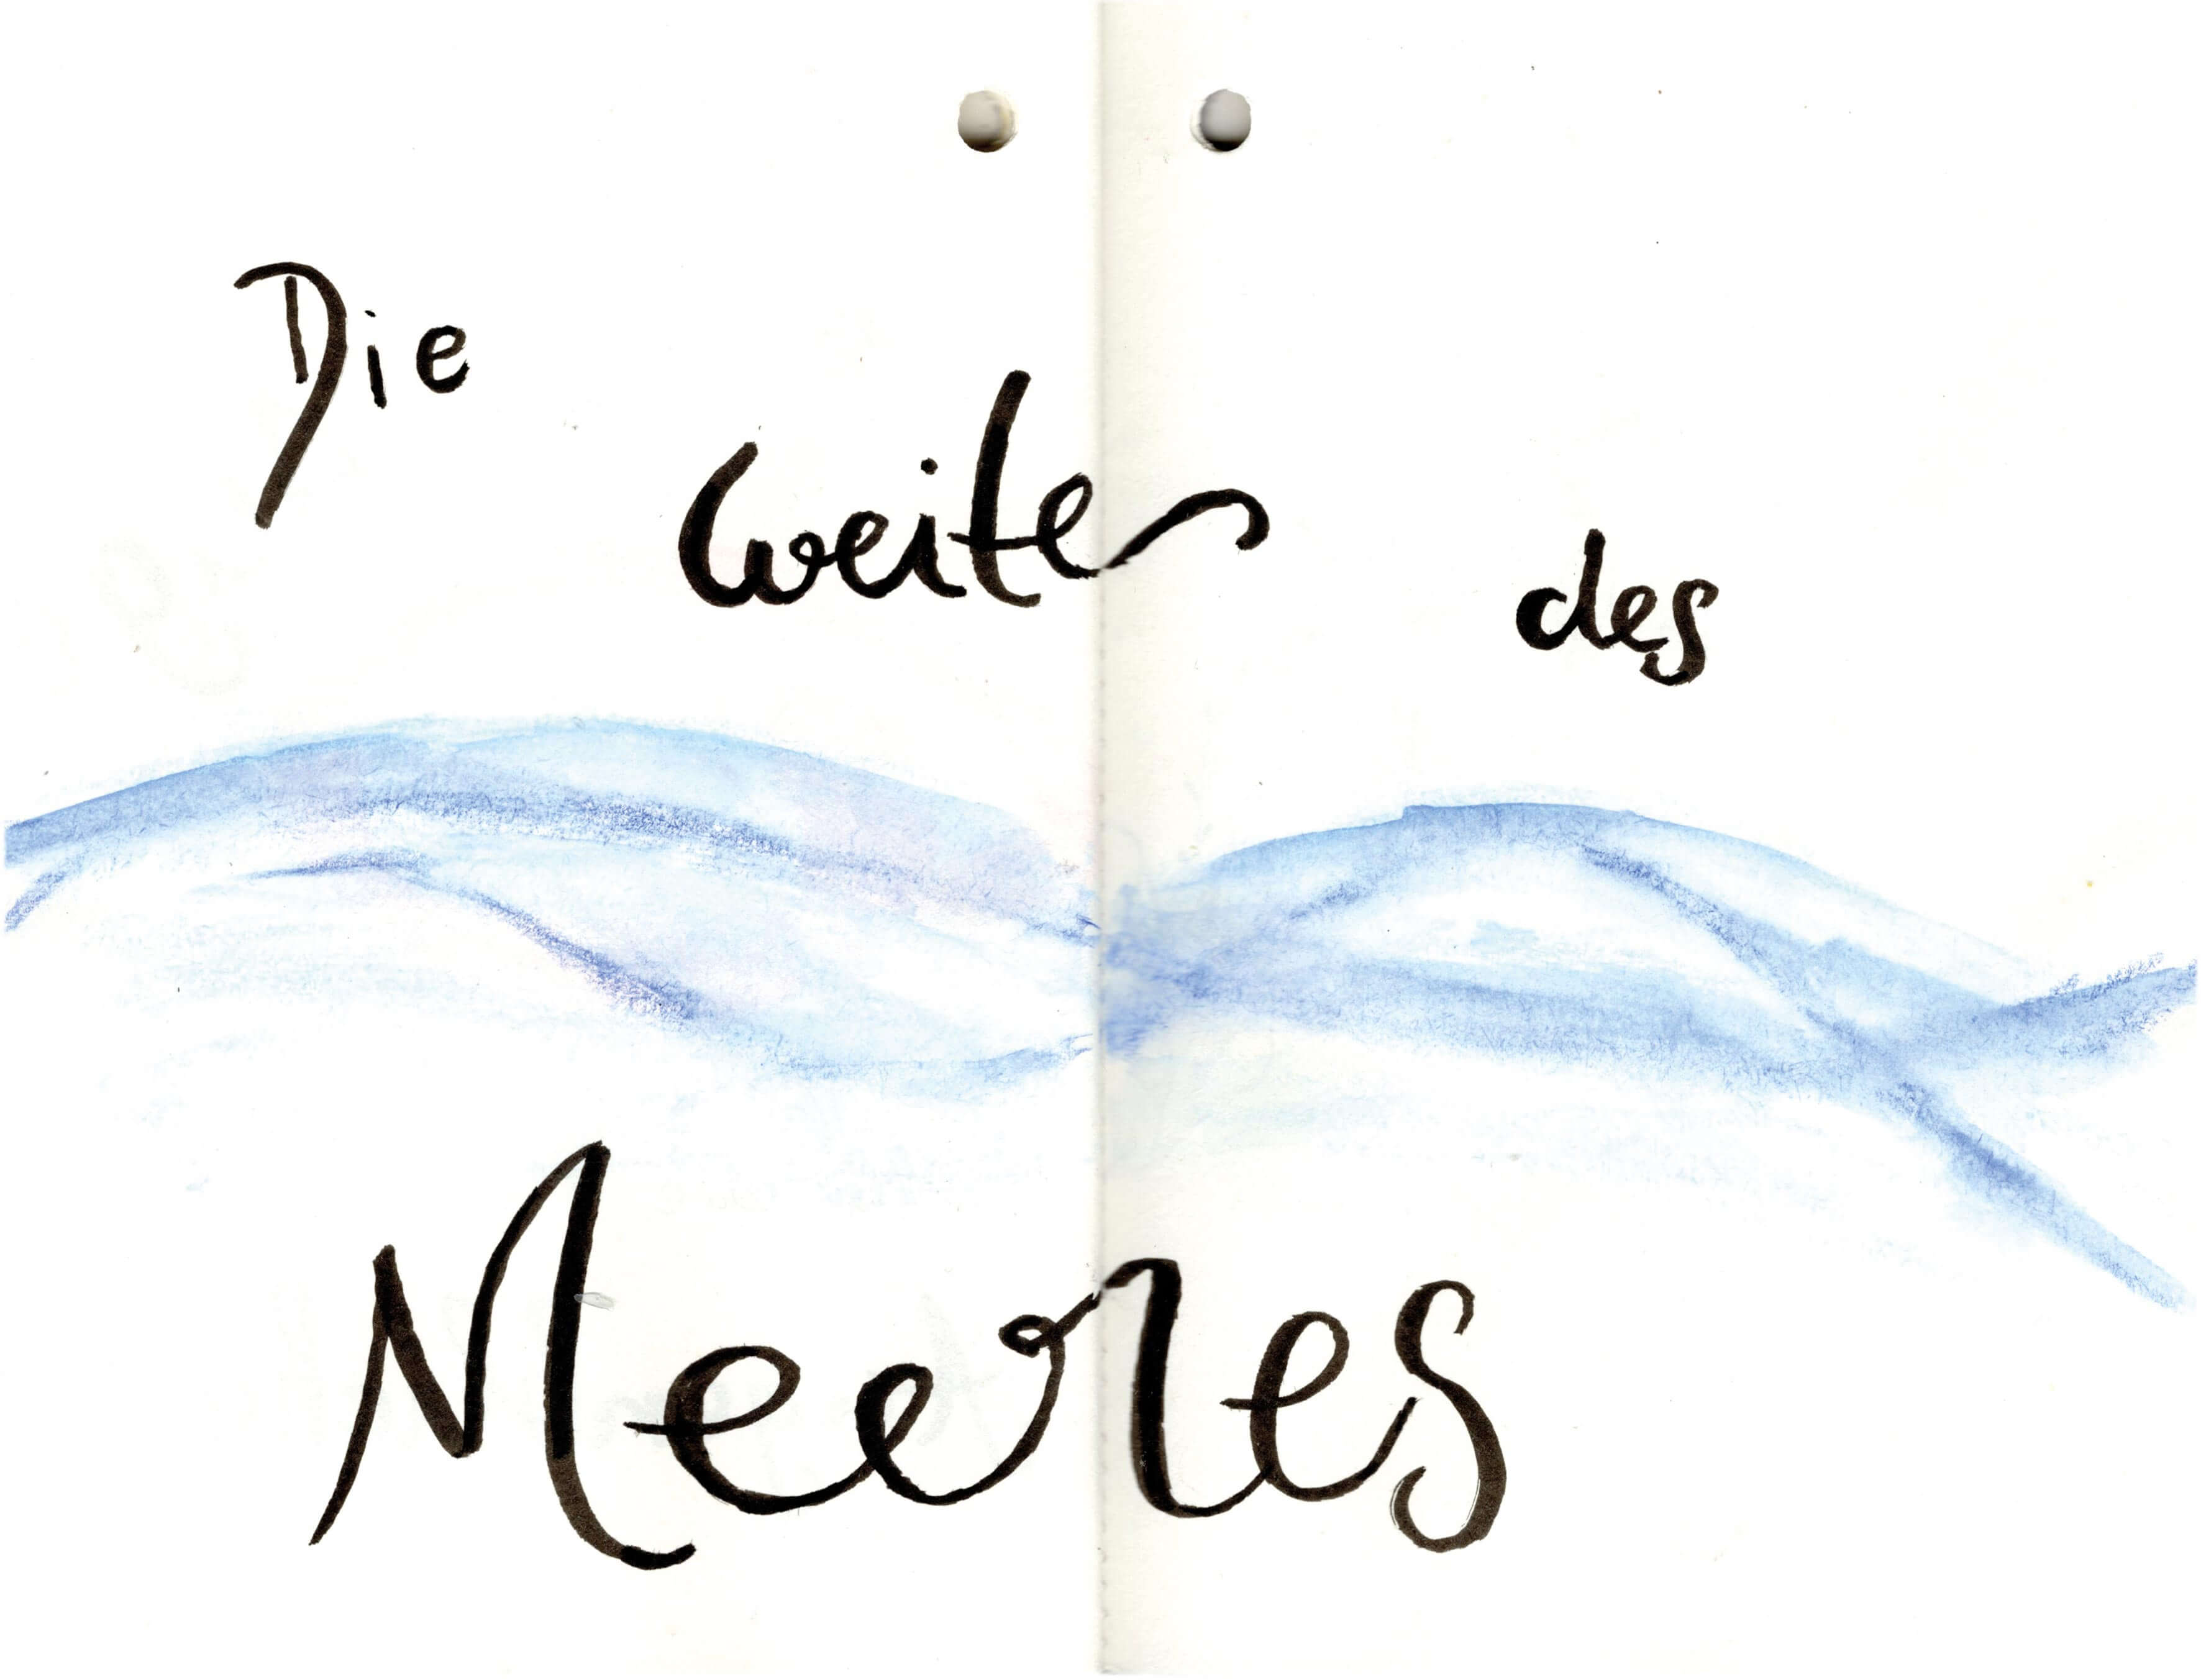 Die
weite
des
Meeres